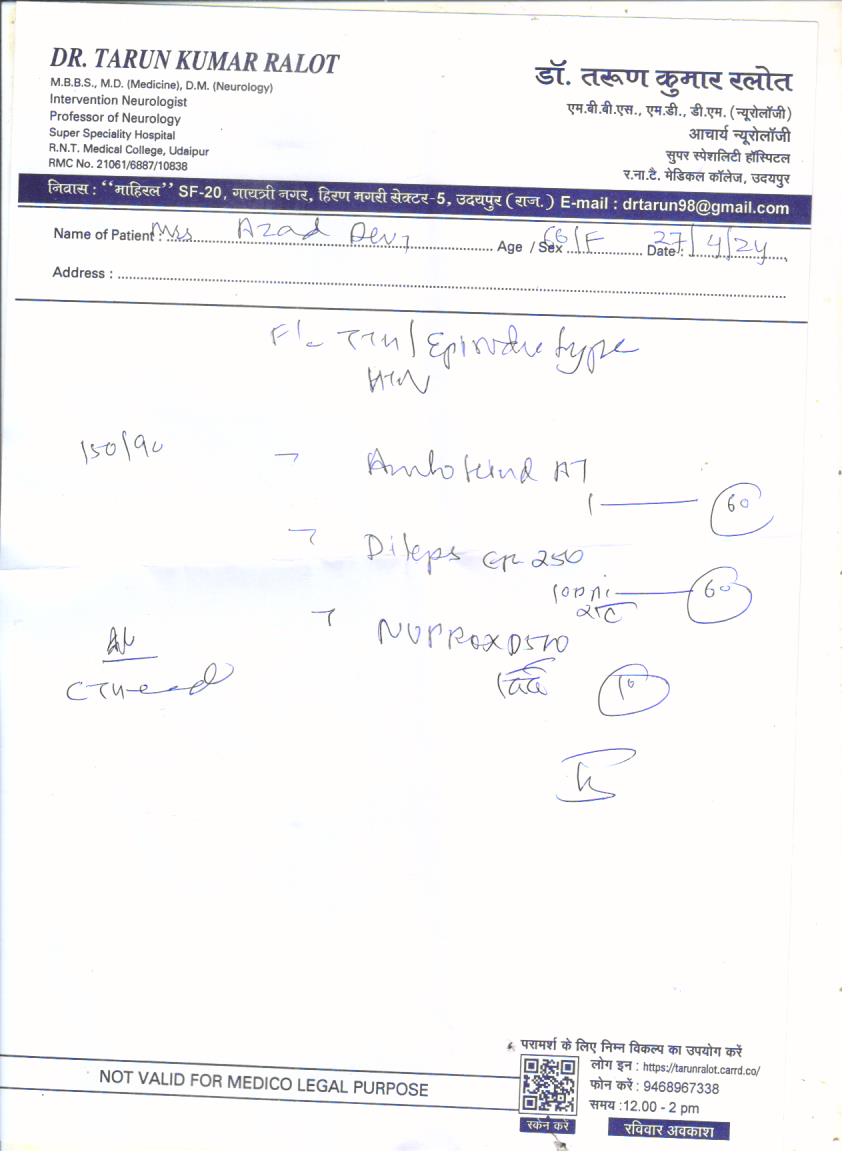 DR. TARUN KUMAR RALOT
M.B.B.S., M.D. (Medicine), D.M. (Neurology)
Intervention Neurologist
Professor of Neurology
Super Speciality Hospital
R.N.T. Medical College, Udaipur
RMC No. 21061/6887/10838
डॉ. तरूण कुमार रलोत
एम.बी.बी.एस., एम.डी., डी.एम. (न्यूरोलॉजी)
आचार्य न्यूरोलॉजी
सुपर स्पेशलिटी हॉस्पिटल
र.ना.टै. मेडिकल कॉलेज, उदयपुर
निवास : "माहिरल" SF-20, गायत्री नगर, हिरण मगरी सेक्टर-5, उदयपुर (राज.) E-mail : drtarun98@gmail.com
Name of Patient : Mrs Azad Devi Age / Sex 66/F Date : 27/4/24
Address :
Episodic type
HTN
150/90
AT
60
CR 250
60
10
NOT VALID FOR MEDICO LEGAL PURPOSE
परामर्श के लिए निम्न विकल्प का उपयोग करें
लोग इन : https://tarunralot.carrd.co/
फोन करें : 9468967338
समय :12.00 - 2 pm
स्कैन करें
रविवार अवकाश